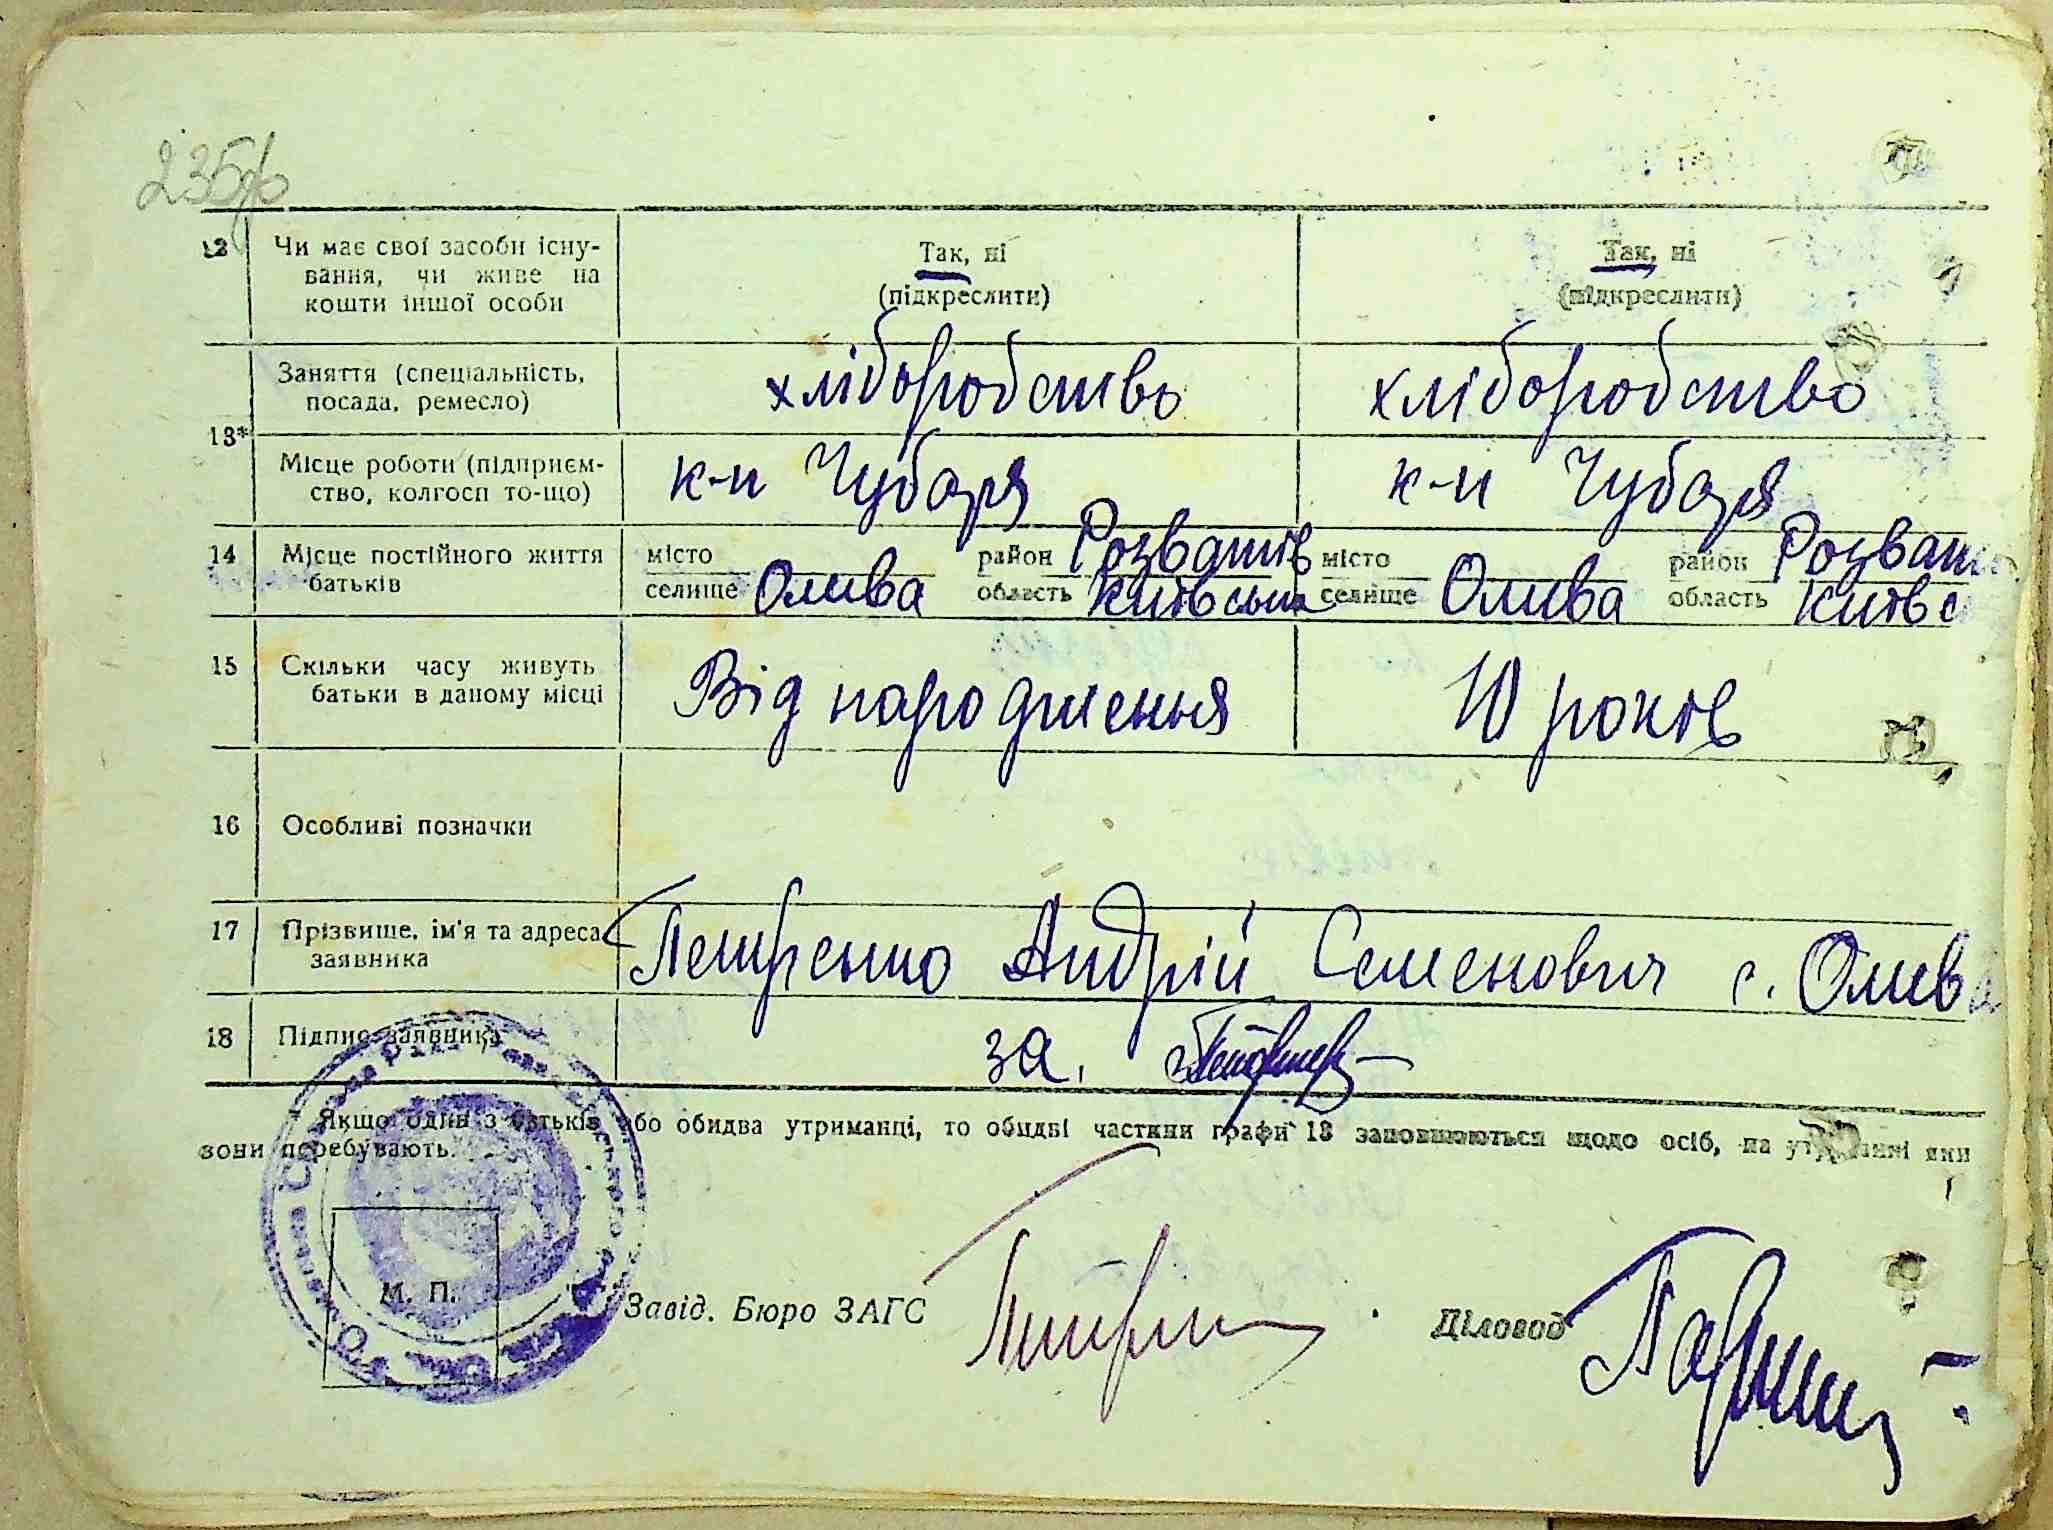 235
12 Чи має свої засоби існу- Так, ні Так, ні
вання, чи живе на
кошти іншої особи (підкреслити) (підкреслити)
Заняття (спеціальність, хліборобство хліборобство
посада, ремесло)
13*
Місце роботи (підприєм- к-п Чубаря к-п Чубаря
ство, колгосп то-що)
14 Місце постійного життя місто район Розважів місто район
батьків селище Олива область Київська селище Олива область
15 Скільки часу живуть Від народження 10 років
батьки в даному місці
16 Особливі позначки
17 Прізвище, ім'я та адреса Петренко Андрій Семенович с. Олива
заявника
18 Підпис заявника за.
Якщо один з батьків або обидва утриманці, то обидві частини графи 13 заповнюються щодо осіб, на утриманні яких
вони перебувають.
М. П.
Завід. Бюро ЗАГС Діловод